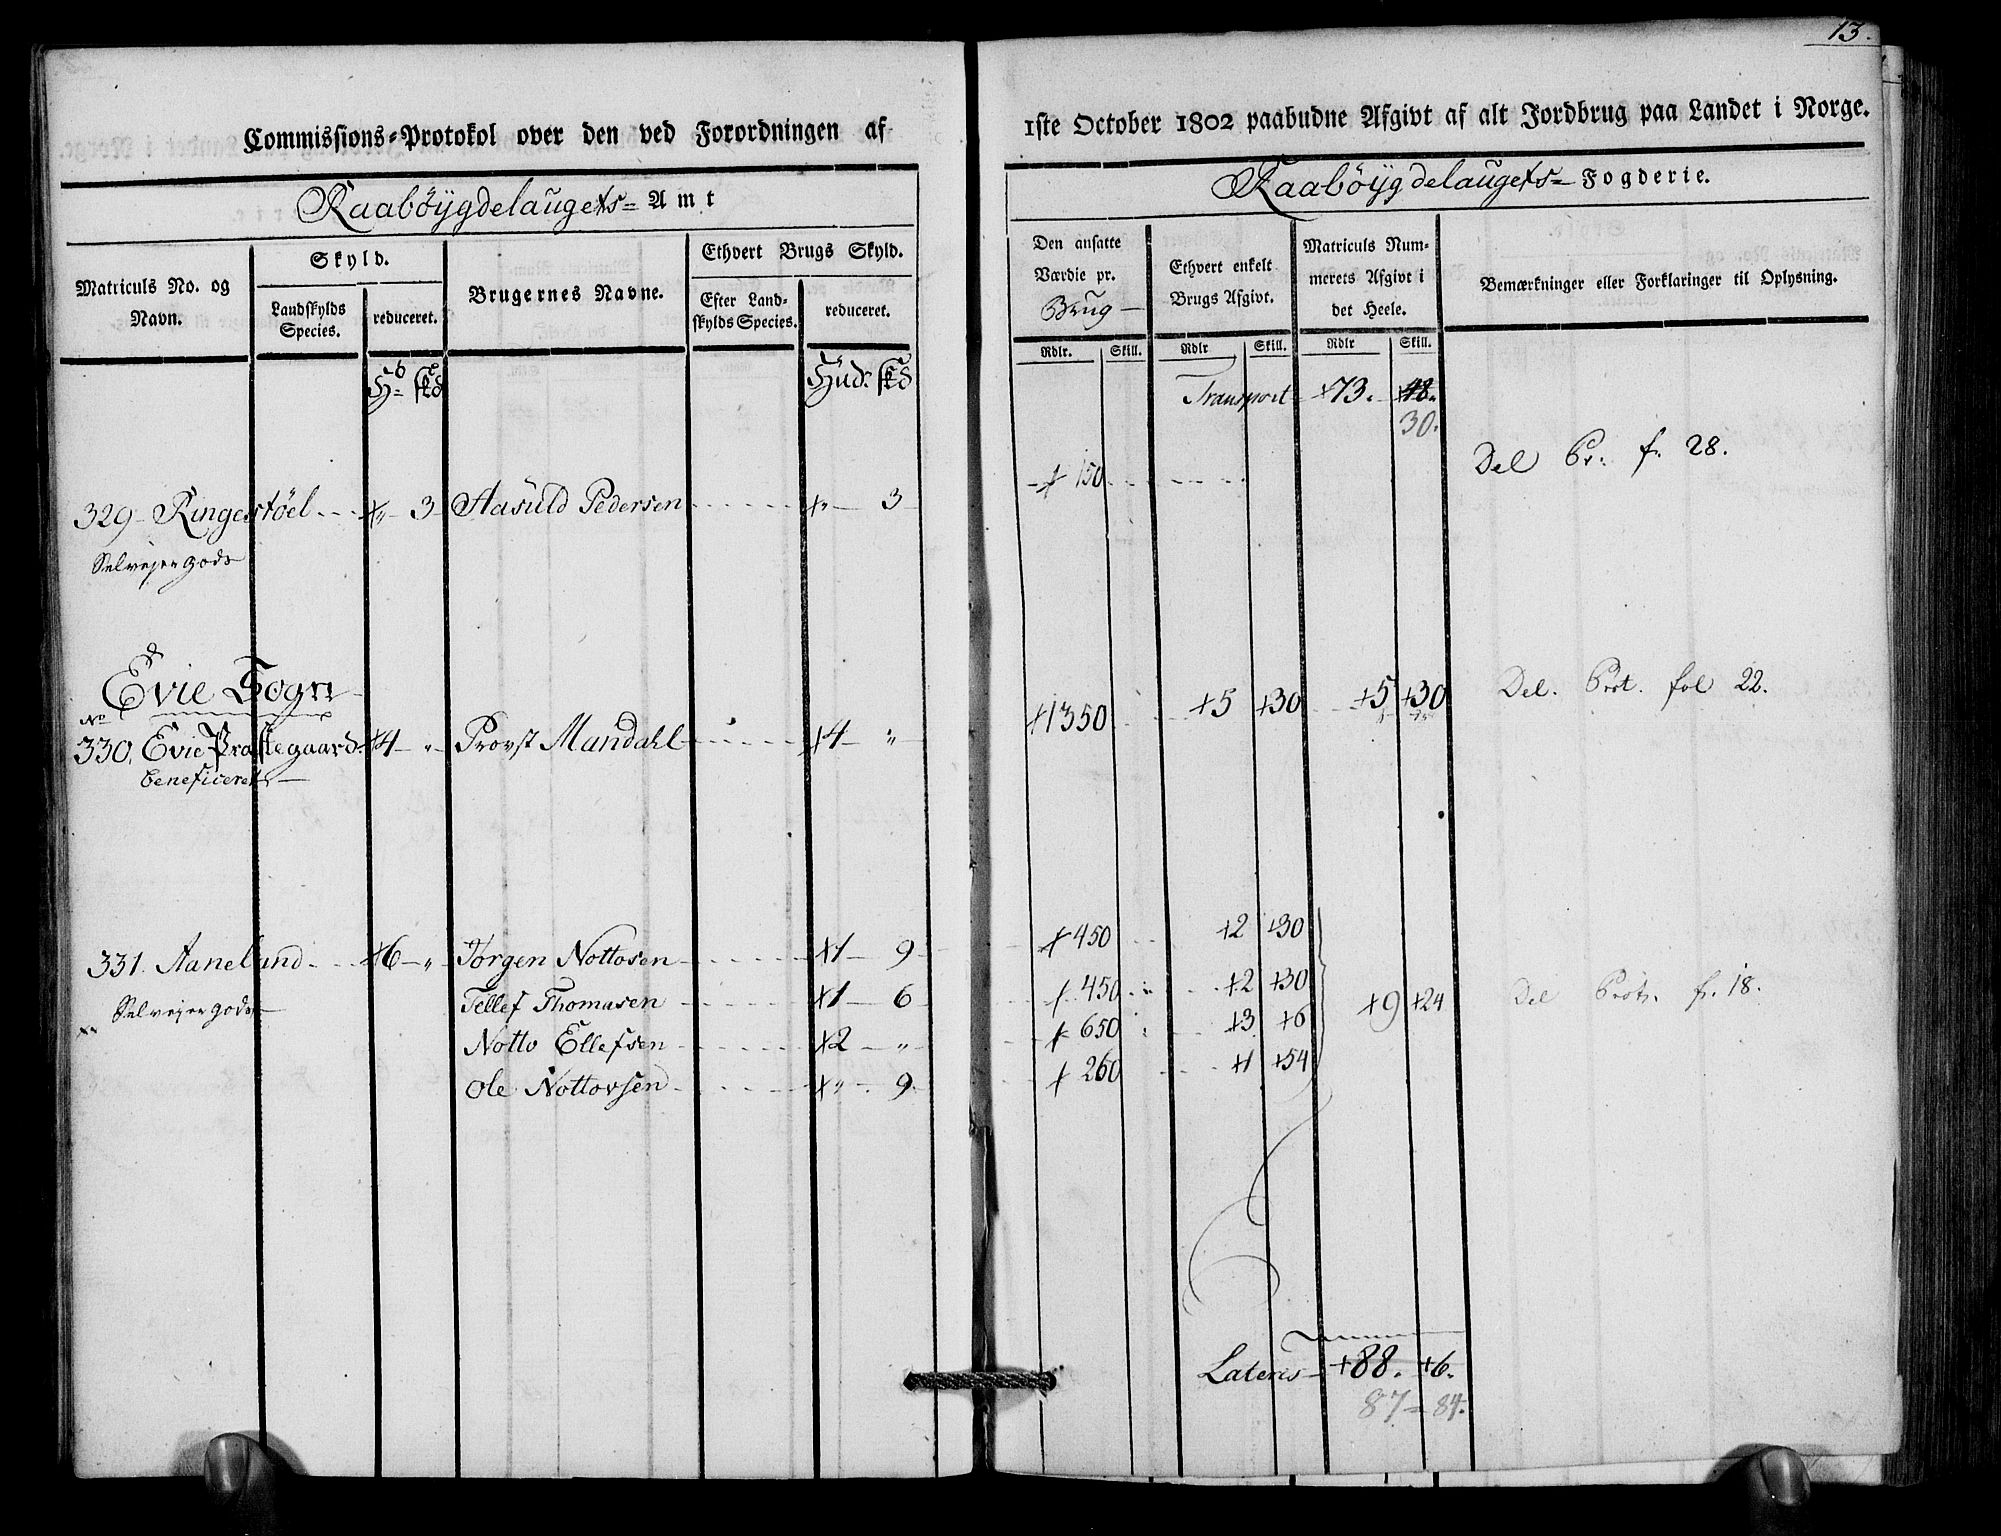 13.
Commissions-Protokol over den ved Forordningen af
Raabøygdelaugets- Amt
Matriculs No. og Navn.
Skyld.
Landskylds Species.
reduceret.
Brugernes Navne.
Ethvert Brugs Skyld.
Efter Landskylds Species.
reduceret.
Hud: skd
329 Ringestøel - - - +„ - 3 Aasuld Pedersen - - - - - +„ - 3
Selvejer gods
Evie Sogn
No
330, Evie Præstegaard +4 - „ Provst Mandahl - - - - +4 - „
beneficeret
331. Aanelund - - +6 - „ Jørgen Nottosen - - - - - +1 - 9
Selvejer gods Tellef Thomasen - - - - - +1 - 6
Notto Ellefsen - - - - - +2 - „
Ole Nottovsen - - - - - +„ - 9
1ste October 1802 paabudne Afgivt af alt Jordbrug paa Landet i Norge.
Raabøygdelaugets- Fogderie.
Den ansatte Værdie pr. Brug
Ethvert enkelt Brugs Afgivt.
Matriculs Nummerets Afgivt i det Heele.
Bemærkninger eller Forklaringer til Oplysning.
Rdlr. Skill. Rdlr Skill. Rdlr Skill.
Transport - +73. +48.
30.
+ 150 - - - - - Del Pr. f. 28.
+1350 - - - +5 +30 - - +5 +30 Del. Prot. fol 22.
+ 450 - - - +2 +30
+ 450 - - - +2 +30
+9 +24 Del Prot. f. 18.
+ 650 +3 +6
+ 260 - - - +1 +54
Lateris - +88. +6.
87 = 84.